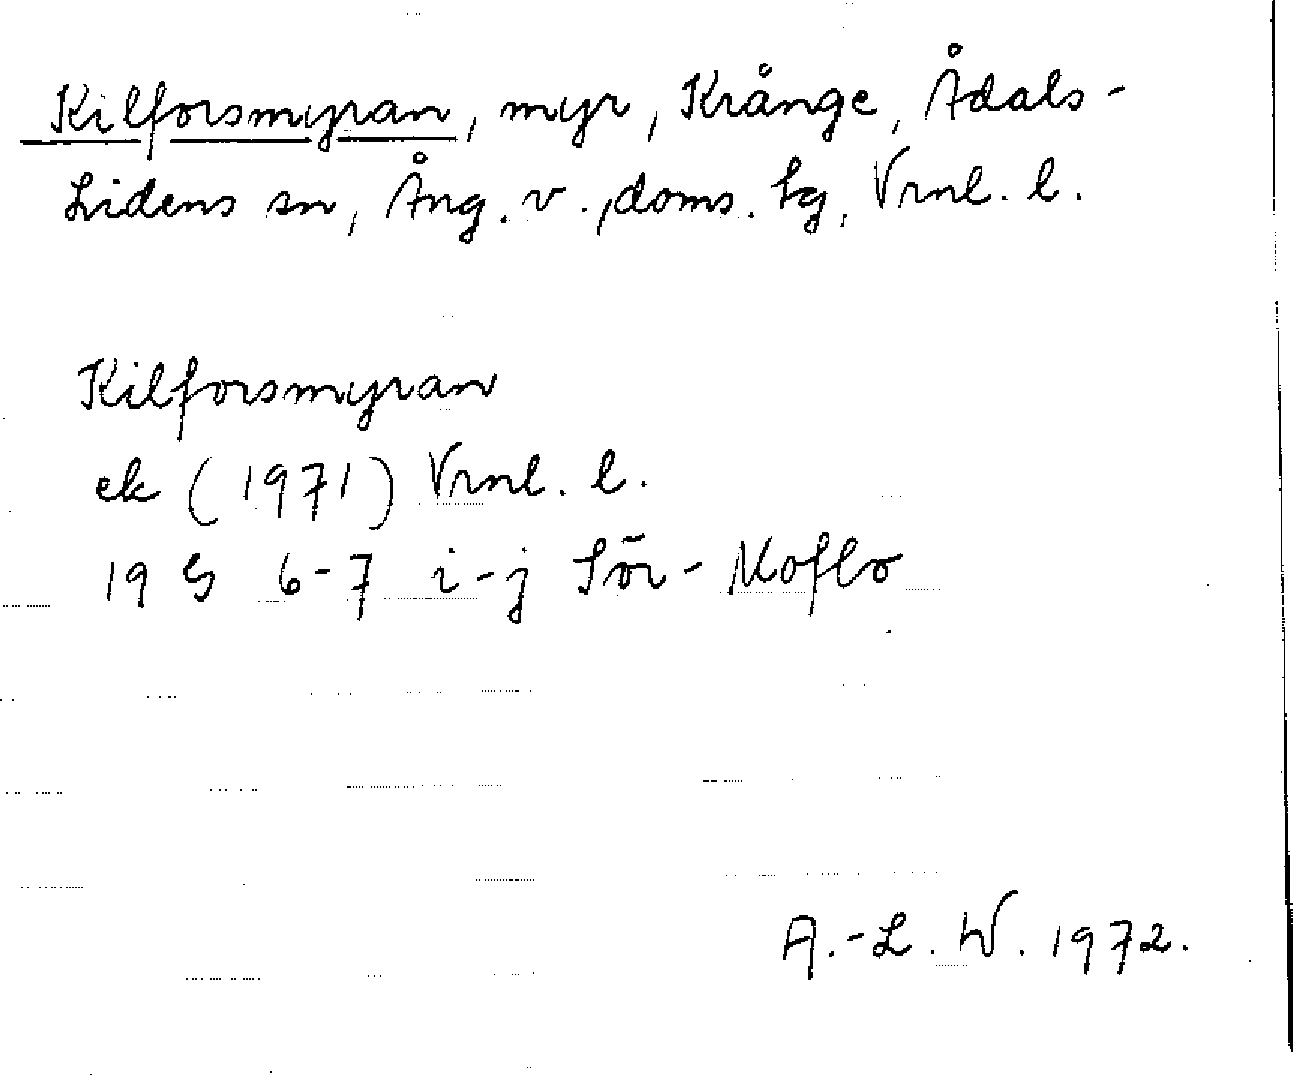 Kilforsmyran, myr, Krånge, Ådals-
Lidens sn, Ång. v., doms. lg, Vrnl. l.
Kilforsmyran
ek (1971) Vrnl. l.
19 G 6-7 i-j Sör-Moflo
A.-L. W. 1972.